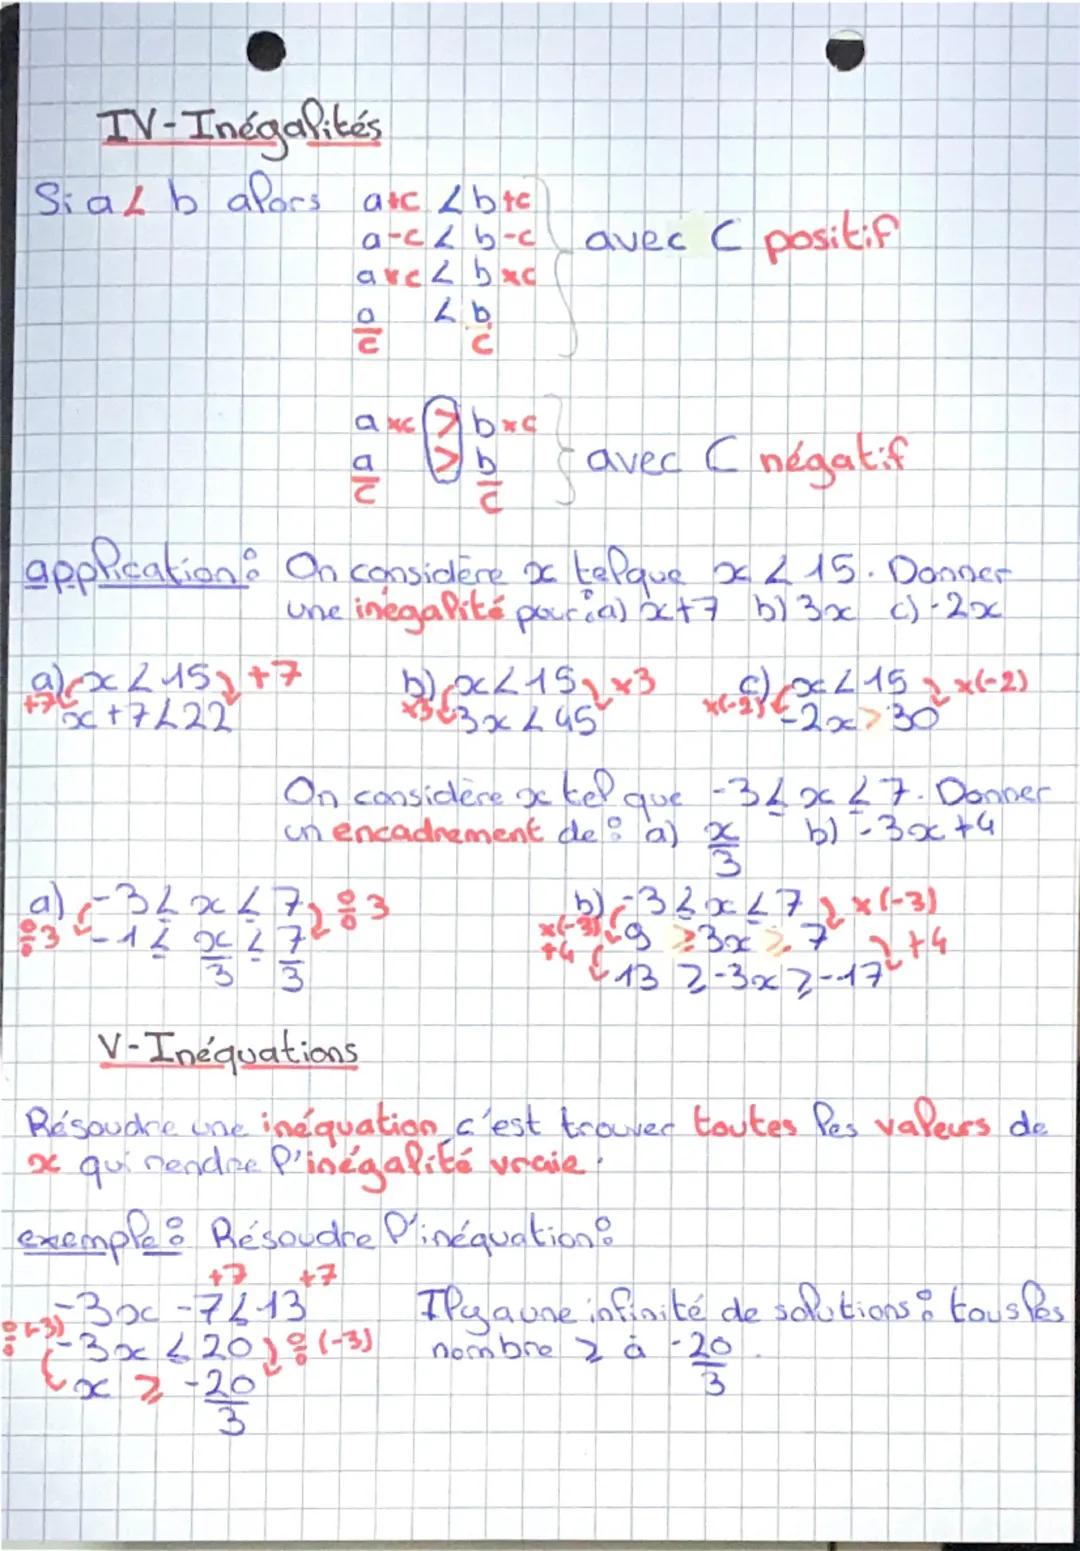 IV-Inégalités
Si a < b alors a+c < b+c
a-c < b-c
avec C positif
a×c < b×c
a/c < b/c
a×c > b×c
a/c > b/c
avec C négatif
application : On considère x telque x < 15. Donner
une inégalité pour : a) x+7 b) 3x c) -2x
a) x < 15 +7
+7 x+7 < 22
b) x < 15 ×3
×3 3x < 45
c) x < 15 ×(-2)
×(-2) -2x > 30
On considère x tel que -3 ≤ x ≤ 7. Donner
un encadrement de : a) x/3 b) -3x+4
a) -3 ≤ x ≤ 7 ÷3
÷3 -1 ≤ x/3 ≤ 7/3
b) -3 ≤ x ≤ 7 ×(-3)
×(-3) 9 ≥ 3x ≥ 7
+4 13 ≥ -3x ≥ -17 +4
V-Inéquations
Résoudre une inéquation, c'est trouver toutes les valeurs de
x qui rendre l'inégalité vraie.
exemple : Résoudre l'inéquation :
+7 +7
-3x -7 ≤ 13
÷(-3) -3x ≤ 20 ÷(-3)
x ≥ -20/3
Il y a une infinité de solutions : tous les
nombre ≥ à -20/3.